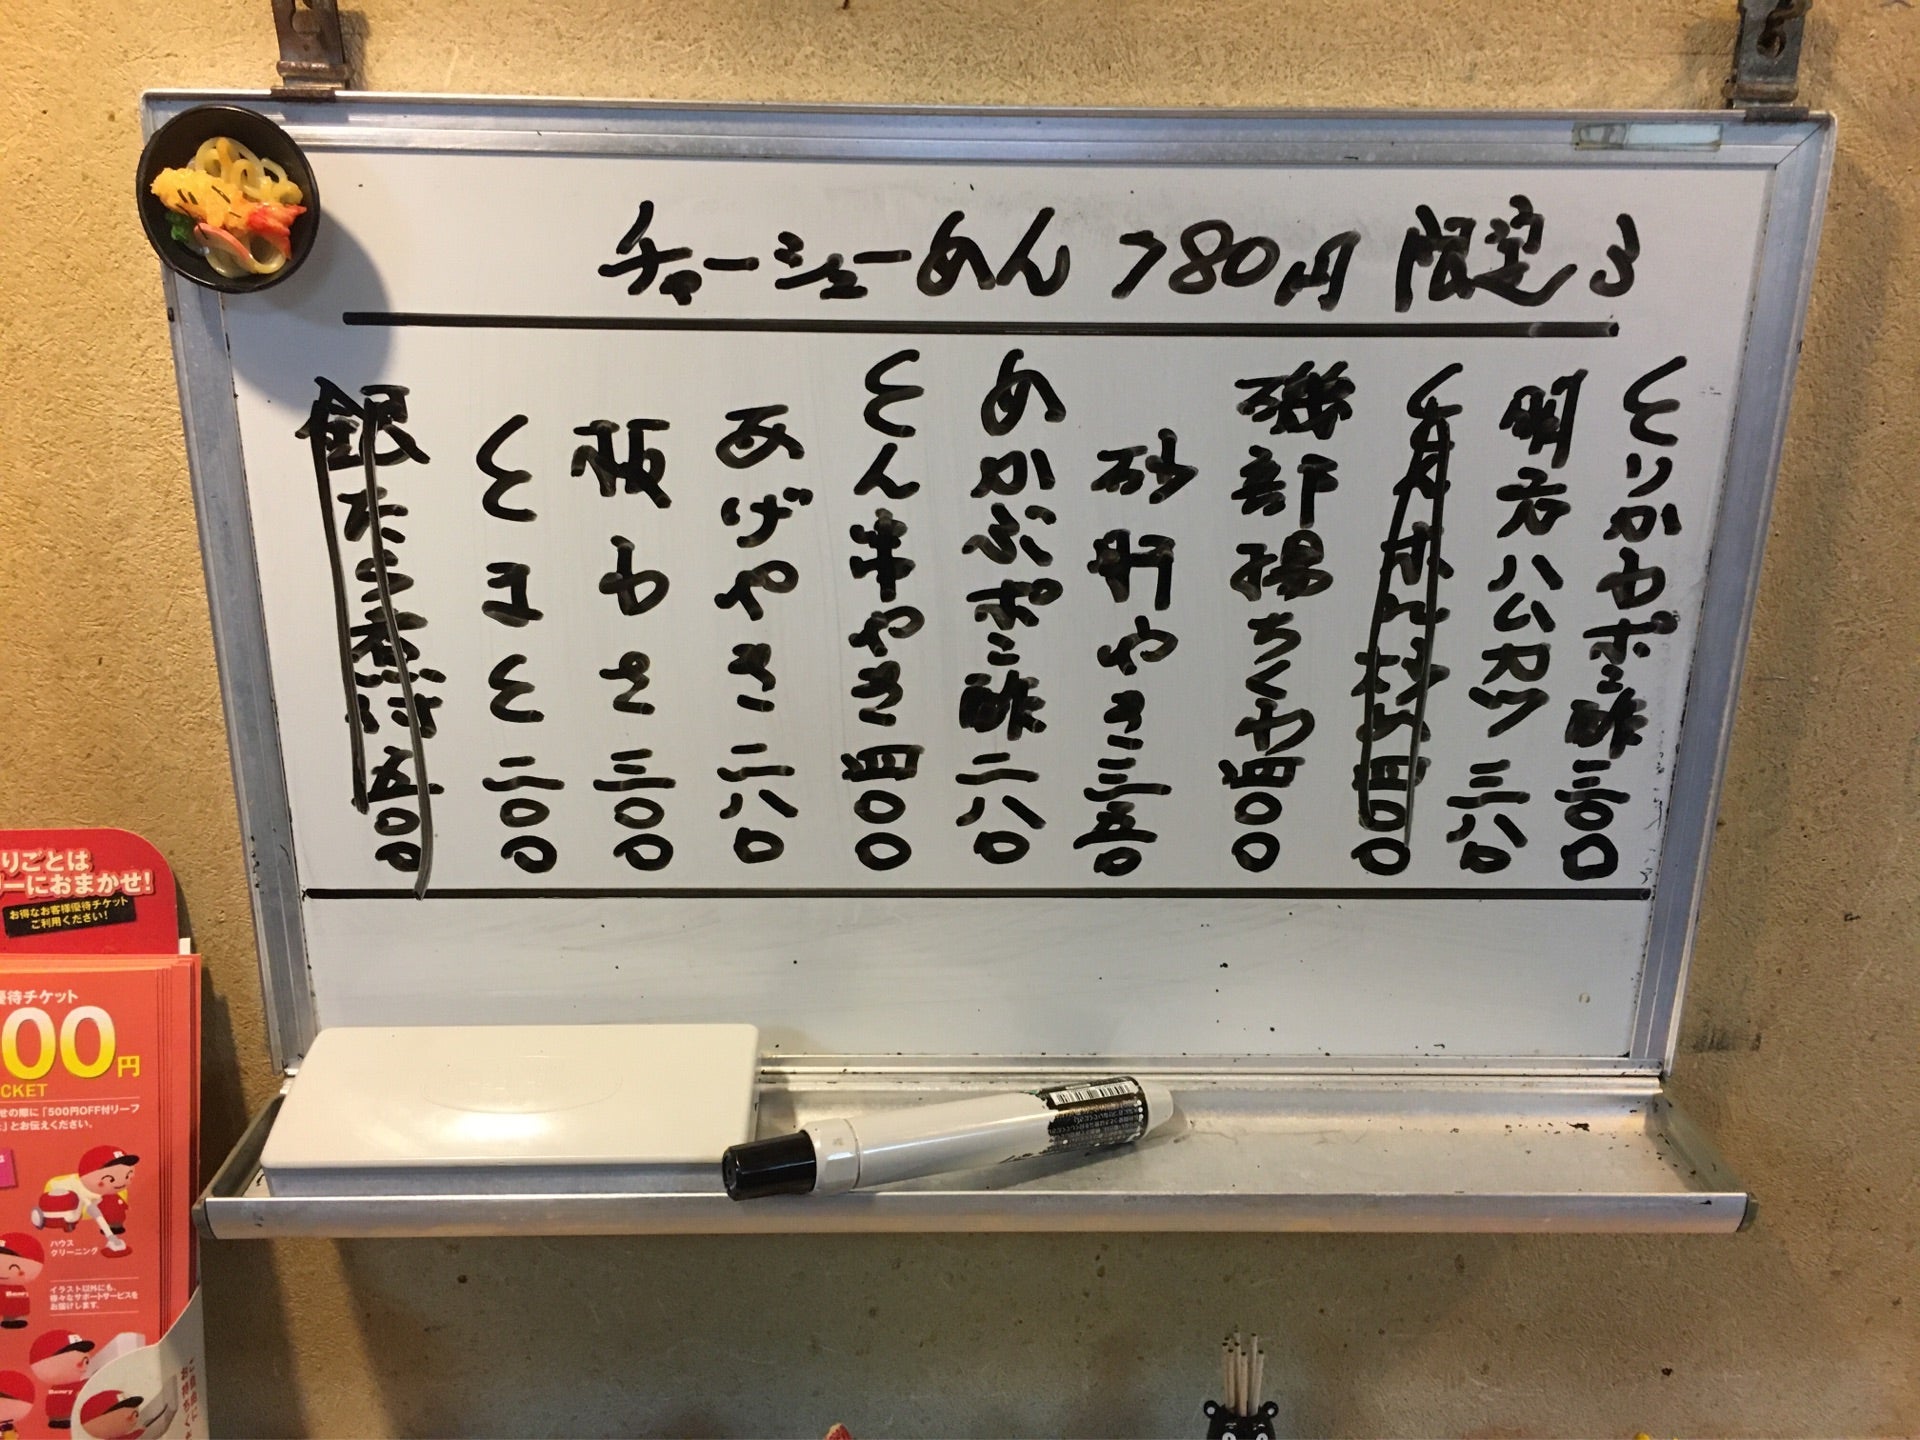 チャーシューめん 780円 限定 3
とりかわポン酢 三〇〇
明太ハムカツ 三八〇
磯部揚ちくわ 四〇〇
砂肝やき 三五〇
めかぶポン酢 二八〇
とん串やき 四〇〇
あげやき 二八〇
板わさ 三〇〇
とまと 二〇〇
銀たら煮付 五〇〇
りごとは
リーにおまかせ!
お得なお客様優待チケット
ご利用ください!
優待チケット
00円
CKET
せの際に「500円OFF付リーフ
」とお伝えください。
ハウス
クリーニング
イラスト以外にも、
様々なサポートサービスを
お届けします。
Benry